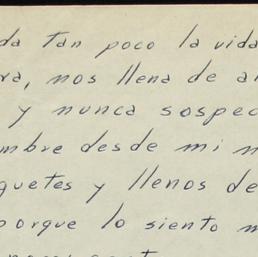 da tan poco la vida
ra, nos llena de a
y nunca sospec
mbre desde mi n
guetes y llenos de
porque lo siento m